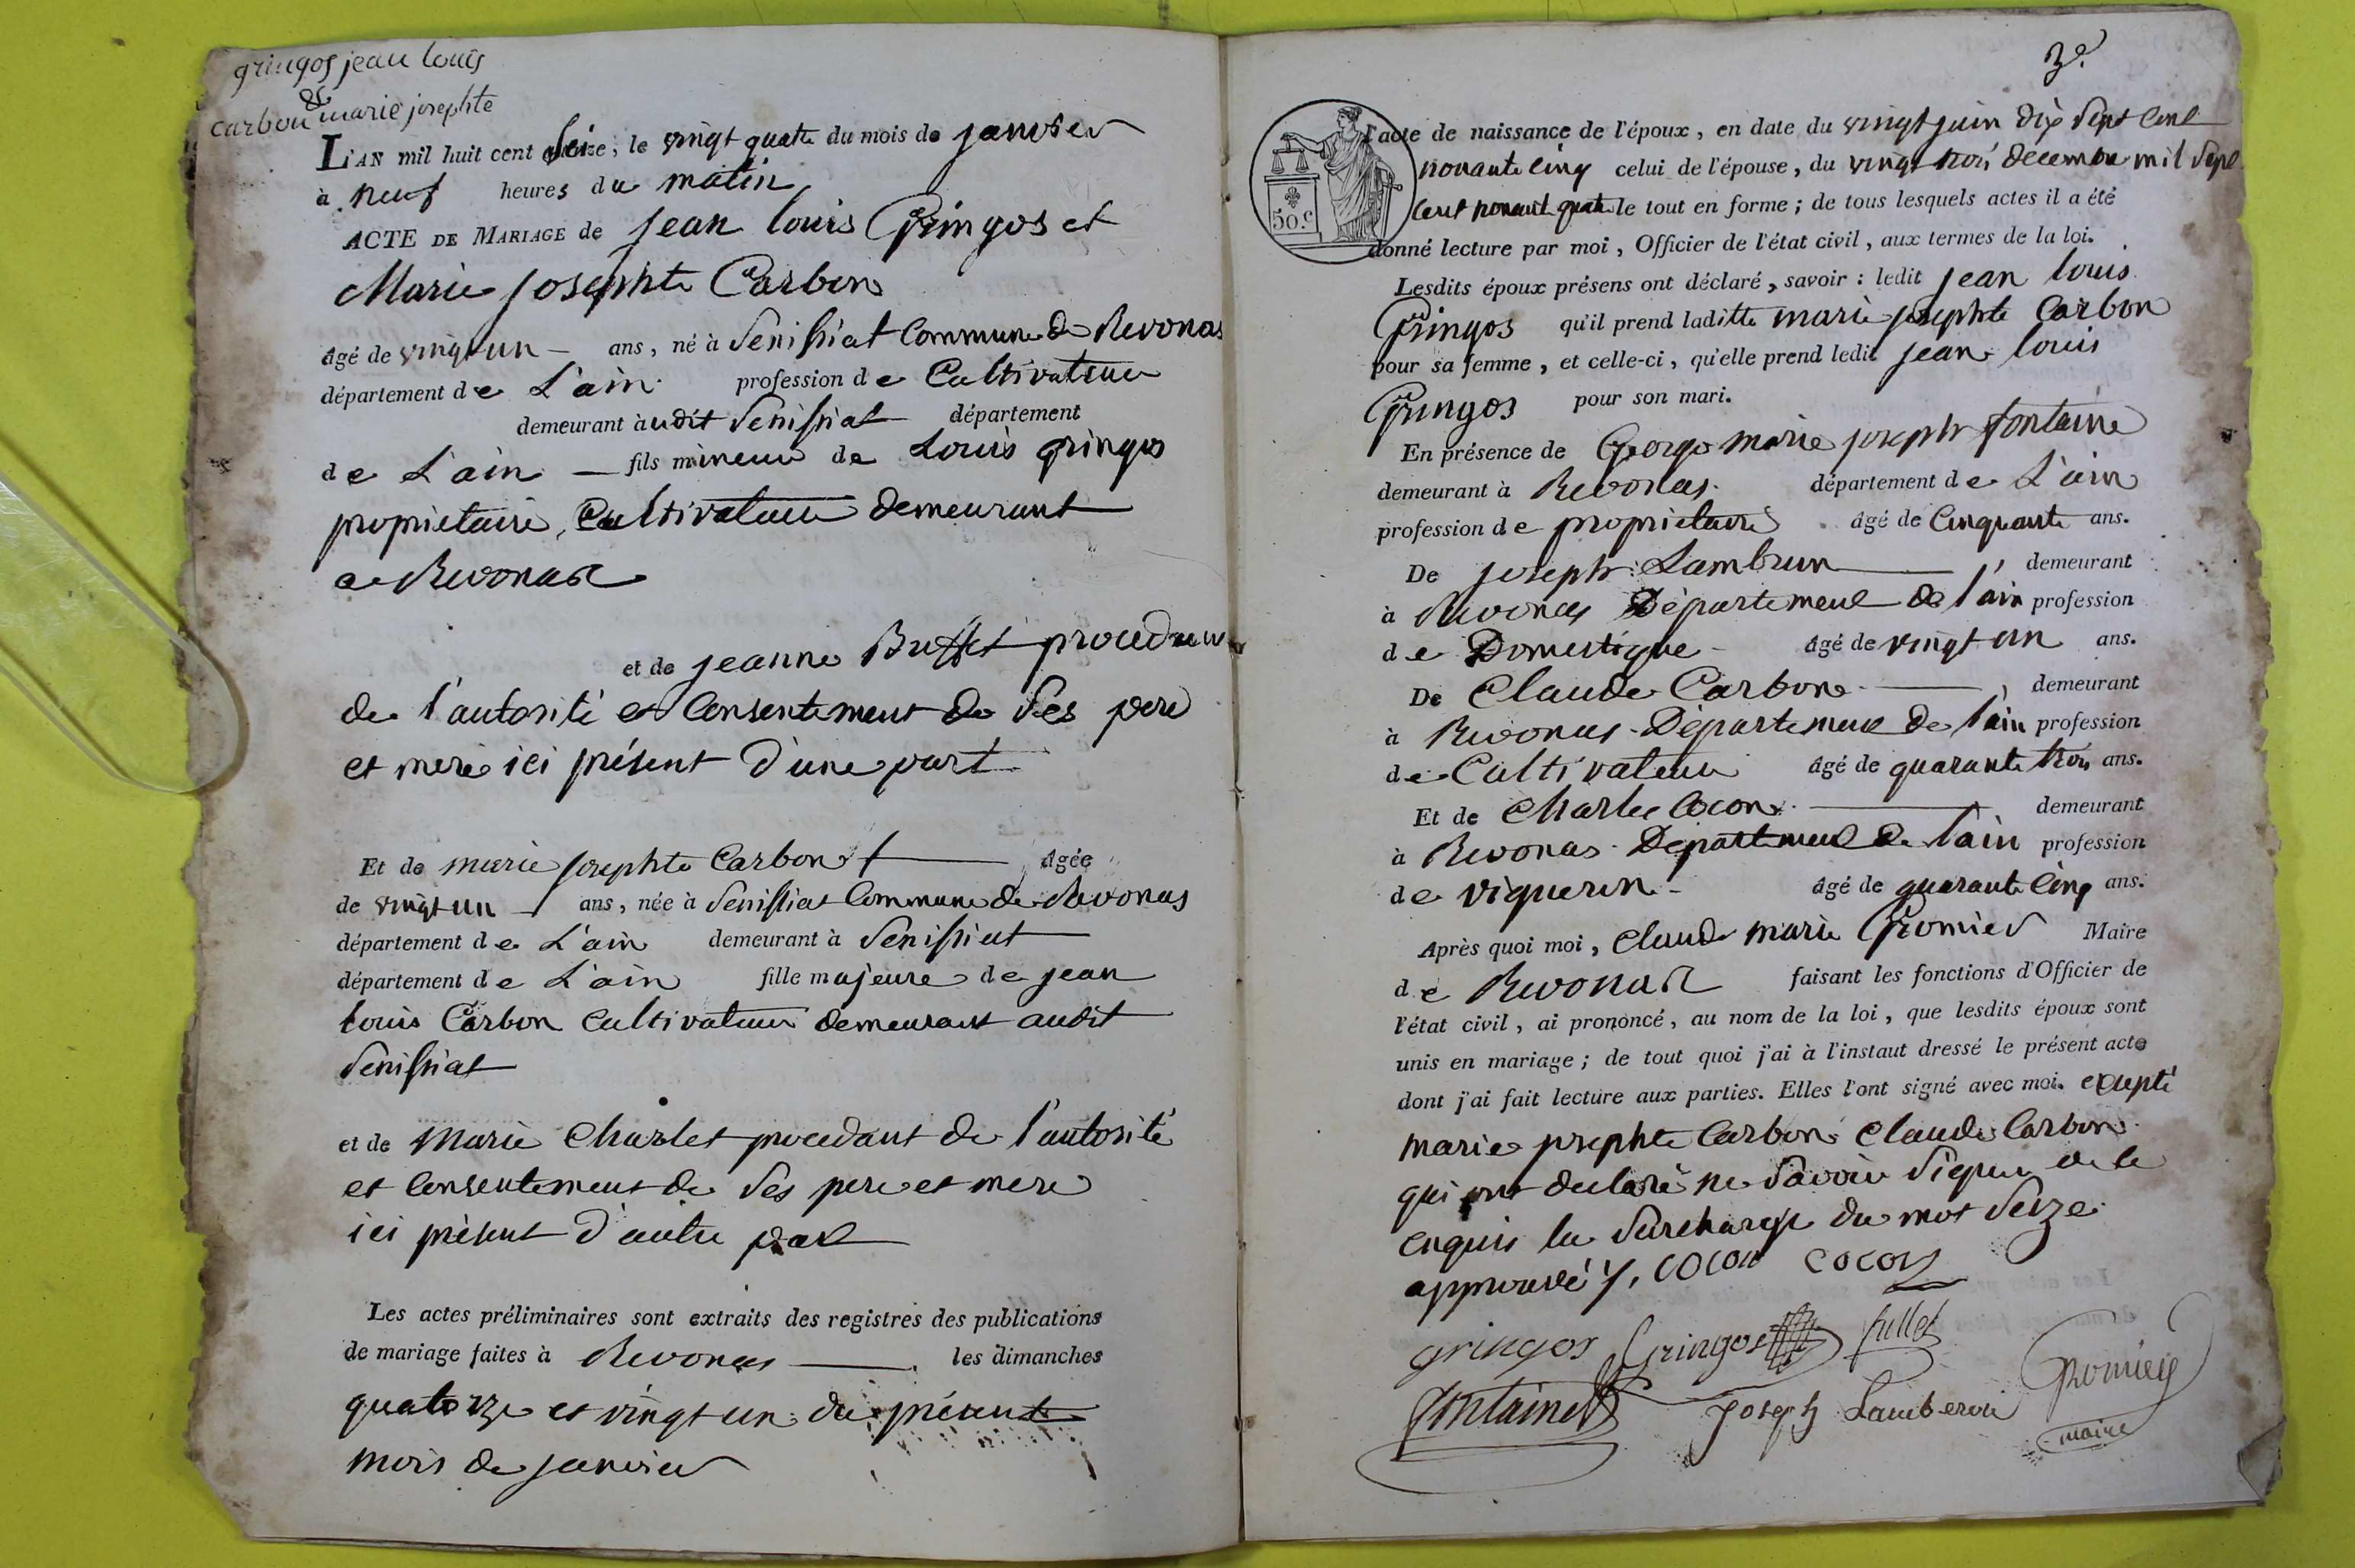 gringos jean louis
&
carbon marie josephte
L'AN mil huit cent seize, le vingt quatre du mois de janvier
à neuf heures du matin
ACTE DE MARIAGE de jean louis Gringos et
Marie josephte Carbon
âgé de vingt un ans, né à Senissiat Commune de Revonas
département de L'ain profession de Cultivateur
demeurant audit Senissiat département
de L'ain fils mineur de Louis gringos
proprietaire, Cultivateur demeurant
a Revonas
et de jeanne Buffet procedant
de l'autorité et Consentement de ses pere
et mere ici présent d'une part
Et de marie josephte Carbon âgée
de vingt un ans, née à Senissiat Commune de Revonas
département de L'ain demeurant à Senissiat
département de L'ain fille majeure de jean
louis Carbon Cultivateur demeurant audit
Senissiat
et de Marie Charlet procedant de l'autorité
et Consentement de ses pere et mere
ici présent d'autre part
Les actes préliminaires sont extraits des registres des publications
de mariage faites à Revonas les dimanches
quatorze et vingt un du présent
mois de janvier
3e.
50.c
l'acte de naissance de l'époux, en date du vingt juin dix sept cent
nonante cinq celui de l'épouse, du vingt trois décembre mil sept
cent nonante quatre le tout en forme; de tous lesquels actes il a été
donné lecture par moi, Officier de l'état civil, aux termes de la loi.
Lesdits époux présens ont déclaré, savoir: ledit jean louis
Gringos qu'il prend laditte marie josephte Carbon
pour sa femme, et celle-ci, qu'elle prend ledit jean louis
Gringos pour son mari.
En présence de George marie joseph fontaine
demeurant à Revonas département de L'ain
profession de proprietaire âgé de Cinquante ans.
De joseph Lambrun, demeurant
à Revonas Département de l'ain profession
de Domestique âgé de vingt un ans.
De Claude Carbon, demeurant
à Revonas Département de l'ain profession
de Cultivateur âgé de quarante trois ans.
Et de Charles Cocon demeurant
à Revonas Département de l'ain profession
de vigneron âgé de quarante Cinq ans.
Après quoi moi, Claude marie Gromier Maire
de Revonas faisant les fonctions d'Officier de
l'état civil, ai prononcé, au nom de la loi, que lesdits époux sont
unis en mariage; de tout quoi j'ai à l'instant dressé le présent acte
dont j'ai fait lecture aux parties. Elles l'ont signé avec moi. excepté
marie josephte Carbon Claude Carbon
qui ont declaré ne savoir signer de ce
enquis la surcharge du mot seize
approuvé COCON
gringos Gringos
fontaine joseph Lamberon Gromier
maire